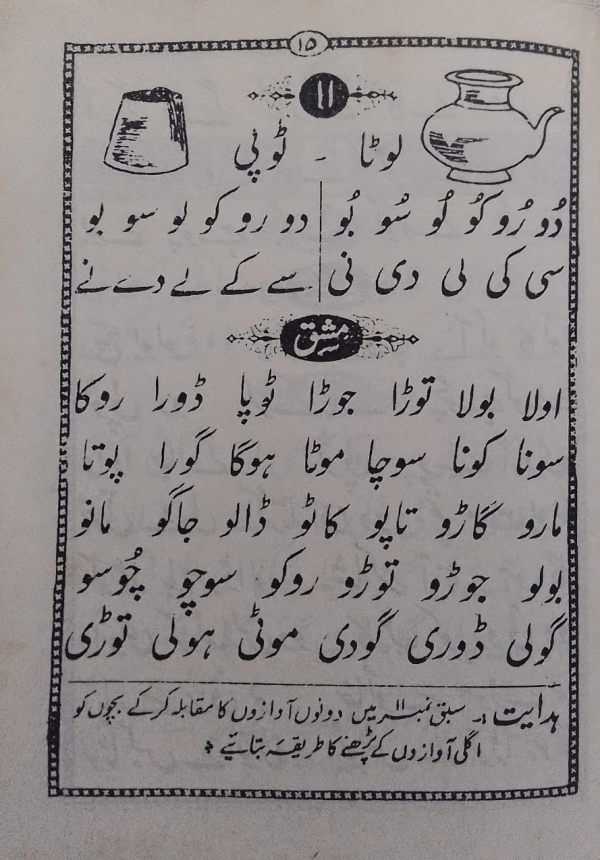 ۱۵
۱۱
لوٹا - ٹوپی
دُو رُو کُو لُو سُو بُو دو رو کو لو سو بو
سی کی لی دی نی سے کے لے دے نے
مشق
اولا بولا توڑا جوڑا ٹوپا ڈورا روکا
سونا کونا سوچا موٹا ہوگا گورا پوتا
مارو گاڑو تاپو کاٹو ڈالو جاگو مانو
بولو جوڑو توڑو روکو سوچو چُوسو
گولی ڈوری گودی موٹی ہولی توڑی
ہدایت :۔ سبق نمبر ۱۱ میں دونوں آوازوں کا مقابلہ کر کے بچوں کو
اگلی آوازوں کے پڑھنے کا طریقہ بتائیے